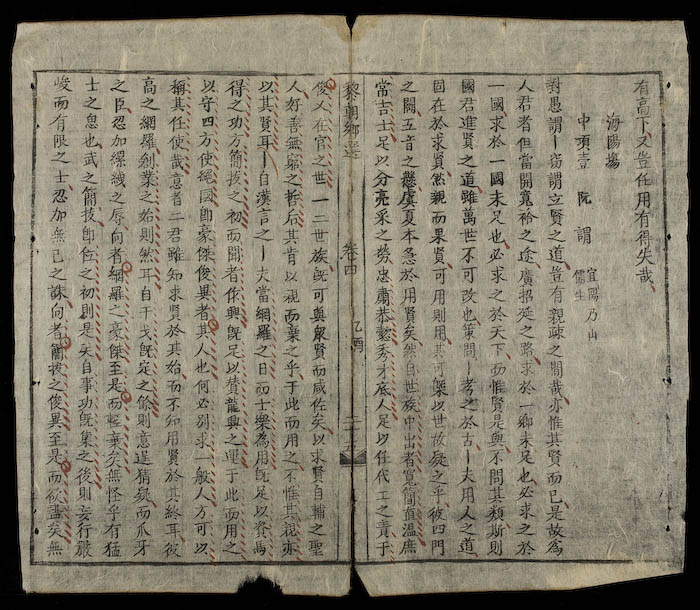 有高下又豈任用有得失哉
海陽場
中項壹 阮謂 宜陽乃山
儒生
對愚謂丨竊謂立賢之道豈有親疎之間哉亦惟其賢而已是故為
人君者但當開寬裕之途廣招延之路求於一鄉未足也必求之於
一國求於一國未足也必求之於天下而惟賢是與不問其類斯則
國君進賢之道雖萬世不可改也策問丨考之於古丨夫用人之道
固在於求賢然親而果賢可用則用其可槩以世故疑之乎彼四門
之闢五音之懸虞夏本急於用賢矣然自世族中出者寬簡直溫庶
當吉士足以分亮采之勞忠肅恭懿秀才底人足以任代工之責于
黎朝鄉選 卷四 乙酉
俊乂在官之世一二世族既可與眾賢而咸佐矣以求賢自輔之聖
人好善無窮之哲后其肯以視而棄之乎于此而用之不惟其親亦
以其賢耳丨自漢言之丨夫當網羅之日而士樂為用既足以資馬
得之功方簡拔之初而聞者傾興既足以贊龍興之運于此而用之
以守四方使總國即豪傑俊異者其人也何必別求一般人方可以
稱其任使哉意者二君雖知求賢於其始而不知用賢於其終耳彼
高之網羅創業之始則然耳自干戈既定之餘則意逞猜疑而爪牙
之臣忍加縲絏之辱向者網羅之豪傑至是而輕棄矣無怪乎有猛
士之思也武之簡拔即位之初則是矣自事功既集之後則妄行嚴
峻而有限之士忍加無已之誅向者簡拔之俊異至是而欲盡矣無